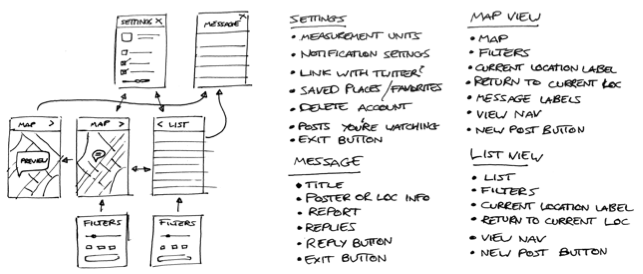 SETTINGS X
MESSAGE X
MAP >
MAP >
< LIST
PREVIEW
FILTERS
FILTERS
SETTINGS
• MEASUREMENT UNITS
• NOTIFICATION SETTINGS
• LINK WITH TWITTER?
• SAVED PLACES/FAVORITES
• DELETE ACCOUNT
• POSTS YOU'RE WATCHING
• EXIT BUTTON
MESSAGE
• TITLE
• POSTER OR LOC INFO
• REPORT
• REPLIES
• REPLY BUTTON
• EXIT BUTTON
MAP VIEW
• MAP
• FILTERS
• CURRENT LOCATION LABEL
• RETURN TO CURRENT LOC
• MESSAGE LABELS
• VIEW NAV
• NEW POST BUTTON
LIST VIEW
• LIST
• FILTERS
• CURRENT LOCATION LABEL
• RETURN TO CURRENT LOC
• VIEW NAV
• NEW POST BUTTON